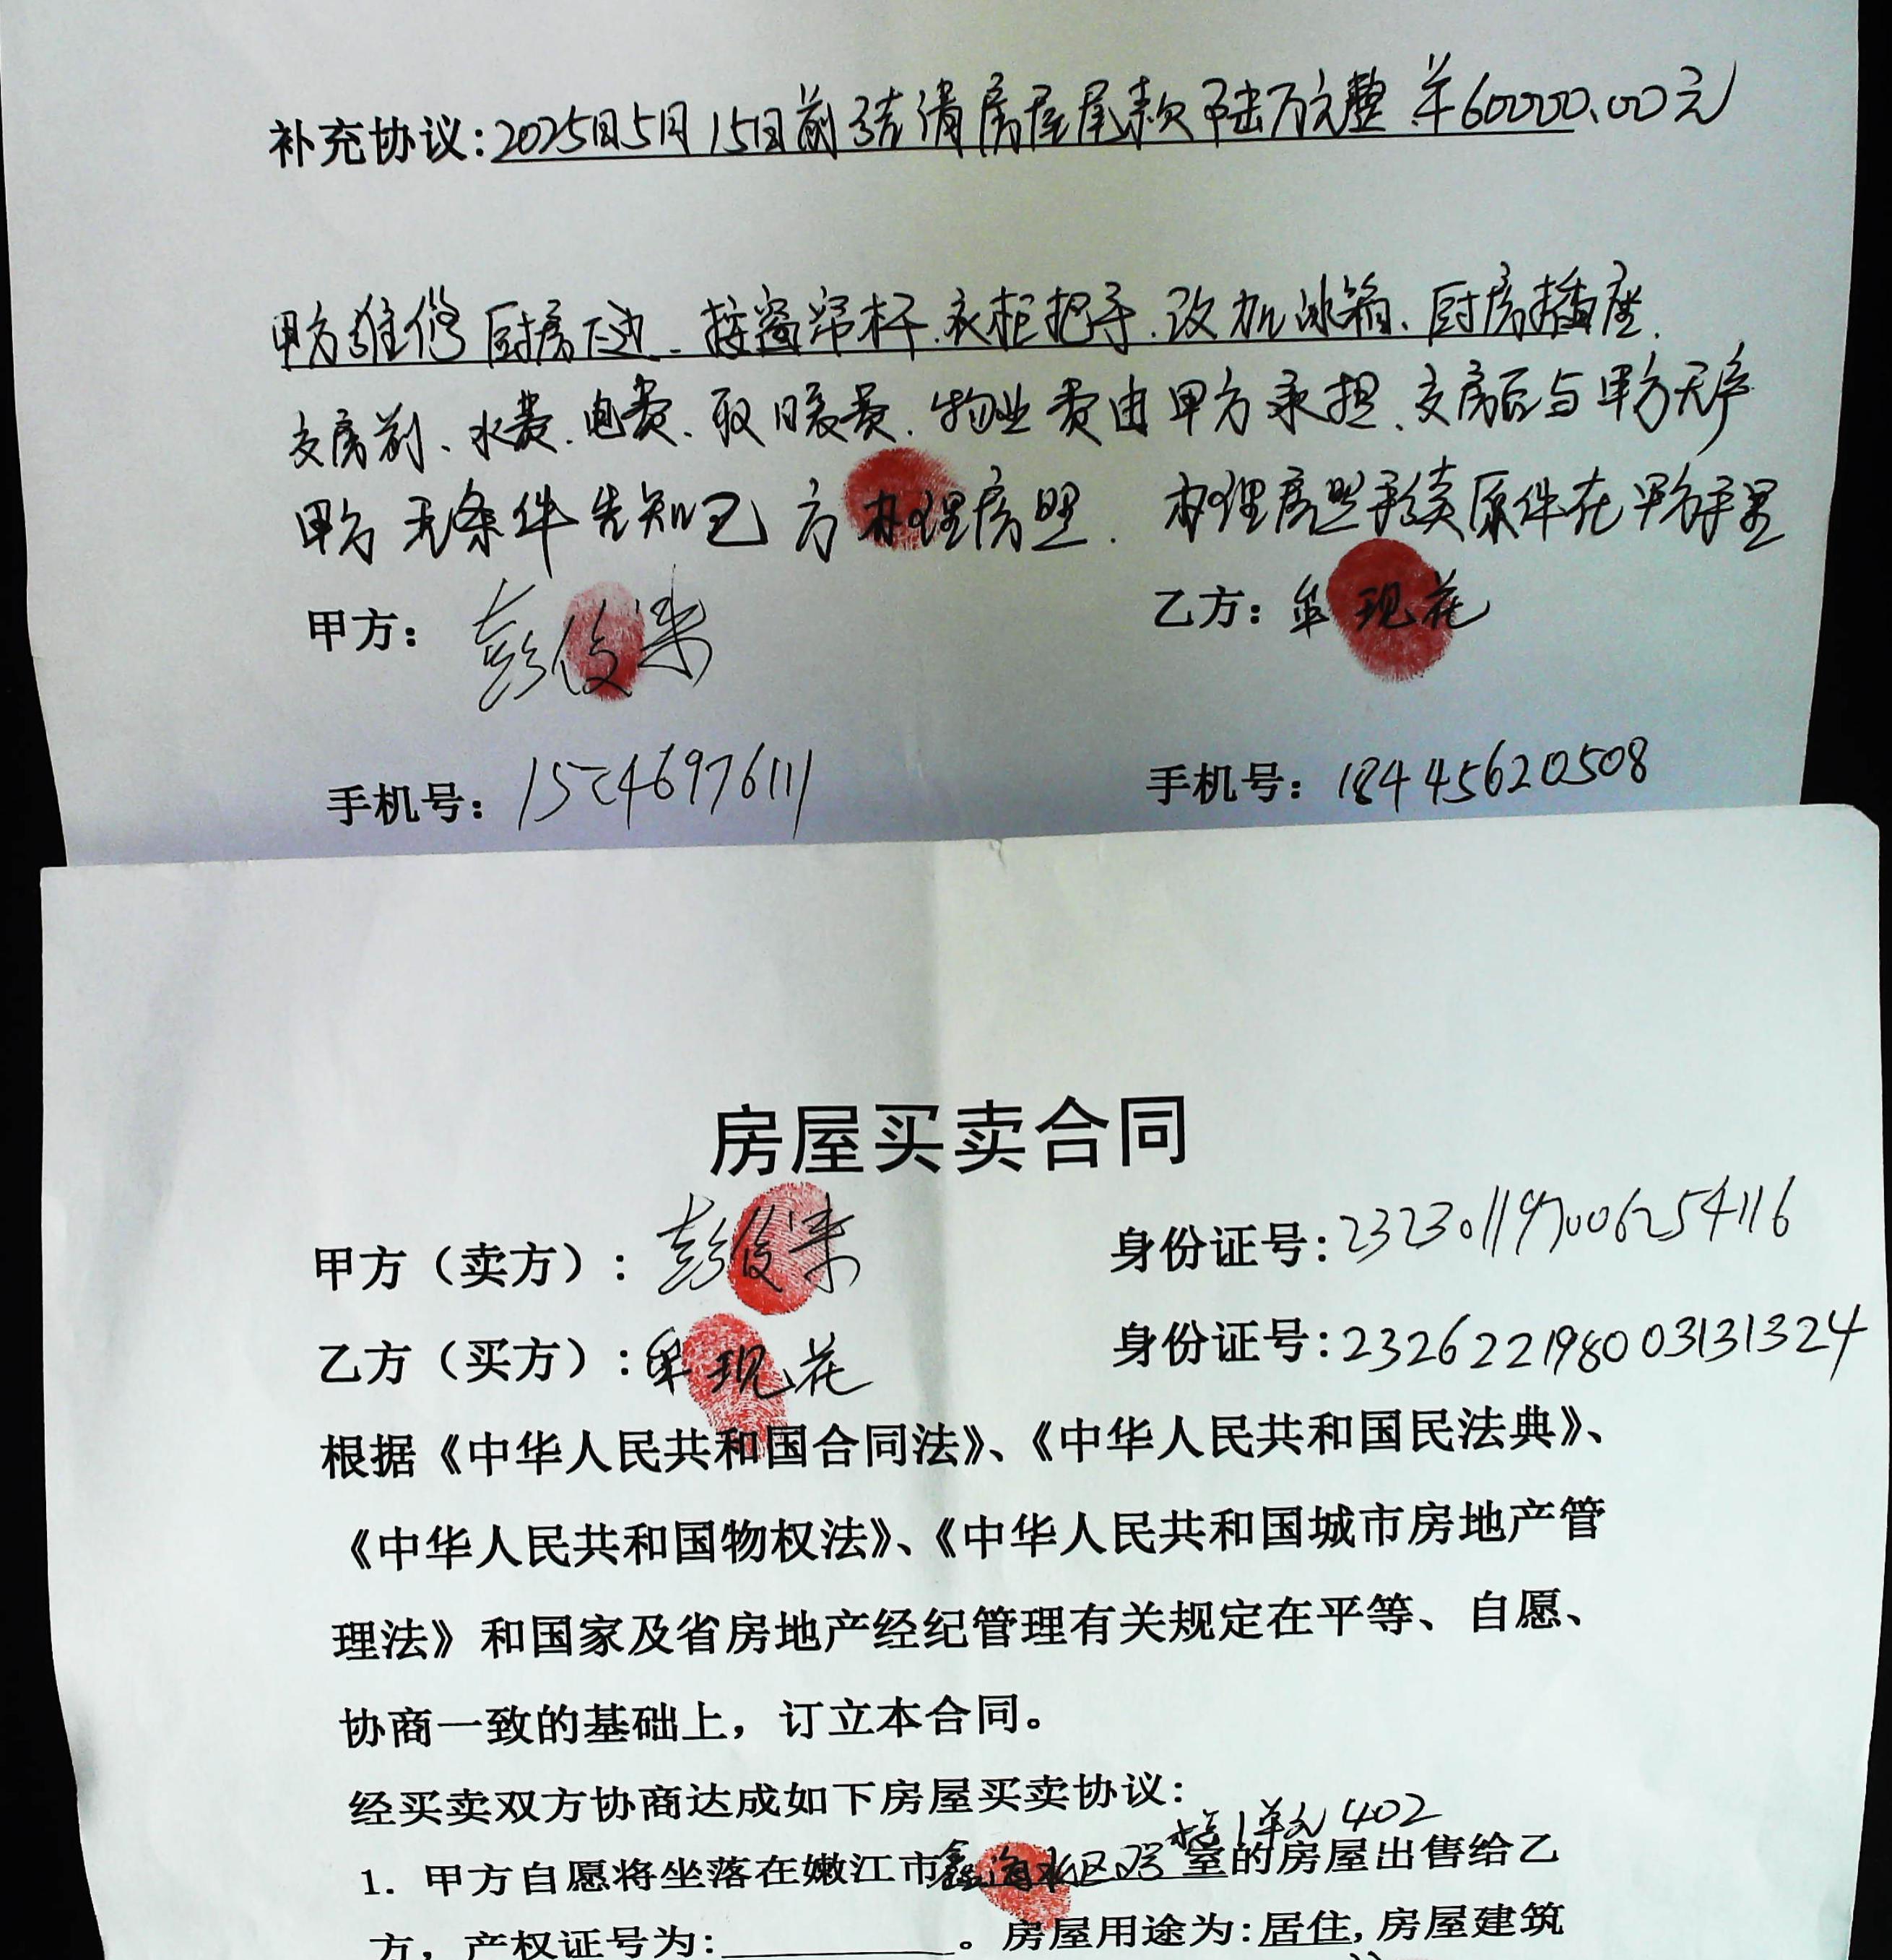 补充协议:2025日5月15日前结清房屋尾款陆万元整 羊60000.00元
甲方维修厨房下边、按窗帘杆、衣柜把手、改加冰箱、厨房插座、
交房前、水费、电费、取暖费、物业费由甲方承担、交房后与甲方无
甲方无条件告知乙方办理房照. 办理房照手续原件在甲方手里
甲方: 彭俊来
乙方: 牟现花
手机号: 15246976111
手机号: 18445620508
房屋买卖合同
甲方（卖方）: 彭俊来 身份证号:232301197006254116
乙方（买方）: 牟现花 身份证号:232622198003131324
根据《中华人民共和国合同法》、《中华人民共和国民法典》、
《中华人民共和国物权法》、《中华人民共和国城市房地产管
理法》和国家及省房地产经纪管理有关规定在平等、自愿、
协商一致的基础上，订立本合同。
经买卖双方协商达成如下房屋买卖协议:
楼1单元402
1. 甲方自愿将坐落在嫩江市鑫海小区2号室的房屋出售给乙
方，产权证号为:。房屋用途为:居住,房屋建筑